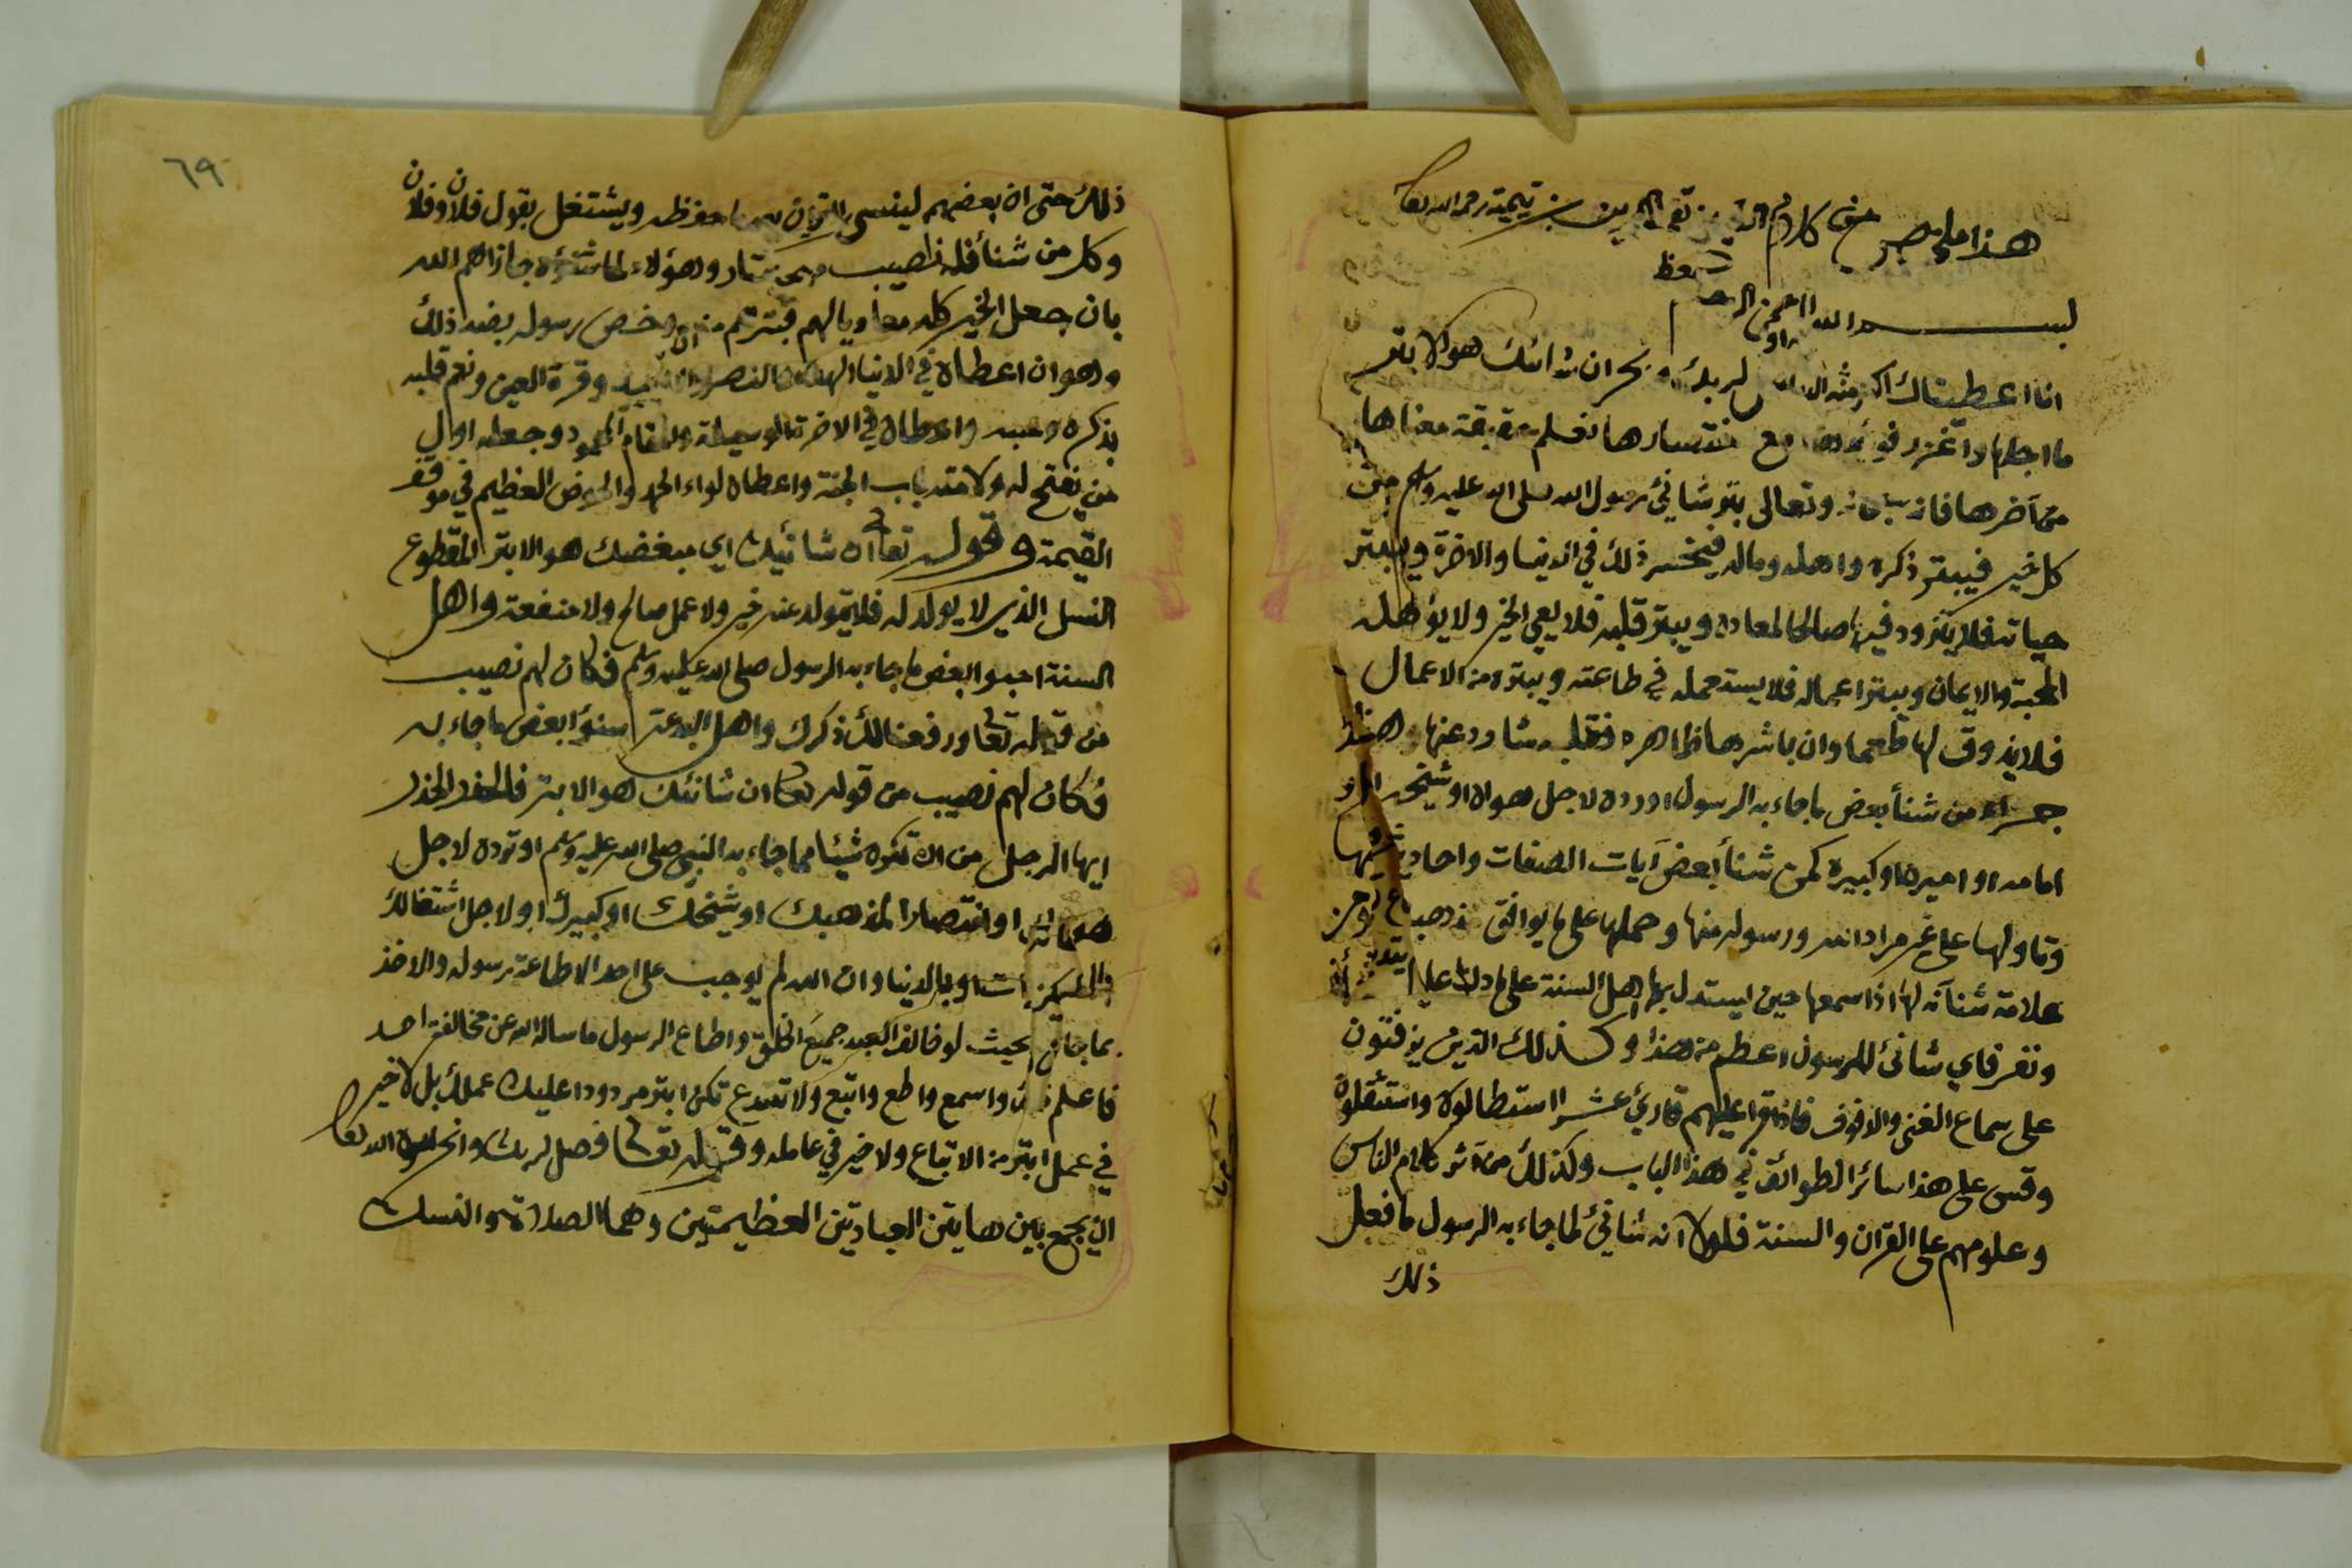 هذا ملخص من كلام الشيخ تقي الدين بن تيمية رحمه الله تعا
بسم الله الرحمن الرحيم
انا اعطيناك الكوثر لربك وانحر ان شانئك هو الابتر
ما اجلها واغزر فوائدها مع اختصارها تعلم حقيقة معناها
من آخرها فانه سبحانه وتعالى بتر شانئ رسول الله صلى الله عليه وسلم من
كل خير فيبتر ذكره واهله وماله فيخسر ذلك في الدنيا والاخرة ويبتر
حياته فلا يتزود فيها صالحا لمعاده ويبتر قلبه فلا يعي الخير ولا يؤهله
لمحبة والايمان ويبتر اعماله فلا يستعمله في طاعته ويبتره من الاعمال
فلا يذوق لها طعما وان باشرها ظاهره فقلبه شارد عنها وهذا
جزاء من شنأ بعض ما جاء به الرسول او رده لاجل هواه او شيخه او
امامه او اميره او كبيره كمن شنأ بعض آيات الصفات واحاديثها
وتاولها على غير مراد الله ورسوله منها وحملها على ما يوافق مذهبه ومن
علامة شنآنه لها اذا سمعها حين يستدل بها اهل السنة على ما دلت عليه
ونفر فاي شانئ للرسول اعظم من هذا وكذلك الذين يزفنون
على سماع الغنى والدفوف فاذا قرا عليهم قارئ عشرا استطالوه واستثقلوه
وقس على هذا سائر الطوائف في هذا الباب وكذلك من آثر كلام الناس
وعلومهم على القرآن والسنة فلولا انه شانئ لما جاء به الرسول ما فعل
ذلك
٦٩
ذلك حتى ان بعضهم لينسى القرآن بعد ما حفظه ويشتغل بقول فلان وفلان
وكل من شنأ فله نصيب وهؤلاء لما شنؤه جازاهم الله
بان جعل الخير كله معاديا لهم فبترهم منه وخص رسوله بضد ذلك
وهو ان اعطاه في الدنيا الهدى والنصر والتأييد وقرة العين ونعم قلبه
بذكره وحبه واعطاه في الاخرة الوسيلة والمقام المحمود وجعله اول
من يفتح له ولامته باب الجنة واعطاه لواء الحمد والحوض العظيم في موقف
القيمة وقوله تعا ان شانئك اي مبغضك هو الابتر المقطوع
النسل الذي لا يولد له فلا يتولد عنه خير ولا عمل صالح ولا منفعة واهل
السنة احبوا بعض ما جاء به الرسول صلى الله عليه وسلم فكان لهم نصيب
من قوله تعا ورفعنا لك ذكرك واهل البدعة شنؤا بعض ما جاء به
فكان لهم نصيب من قوله تعا ان شانئك هو الابتر فالحذر الحذر
ايها الرجل من ان تكره شيئا مما جاء به النبي صلى الله عليه وسلم او ترده لاجل
هواك او انتصارا لمذهبك او شيخك او كبيرك او لاجل اشتغالك
او بالدنيا وان الله لم يوجب على احد الا طاعة رسوله والاخذ
بما جا به بحيث لو خالف العبد جميع الخلق واطاع الرسول ما ساله الله عن مخالفة احد
فاعلم ذلك واسمع واطع واتبع ولا تبتدع تكن ابتر مردودا عليك عملك بل لا خير
في عمل ابتر من الاتباع ولا خير في عامله وقوله تعا فصل لربك وانحر امره الله تعا
ان يجمع بين هاتين العبادتين العظيمتين وهما الصلاة والنسك